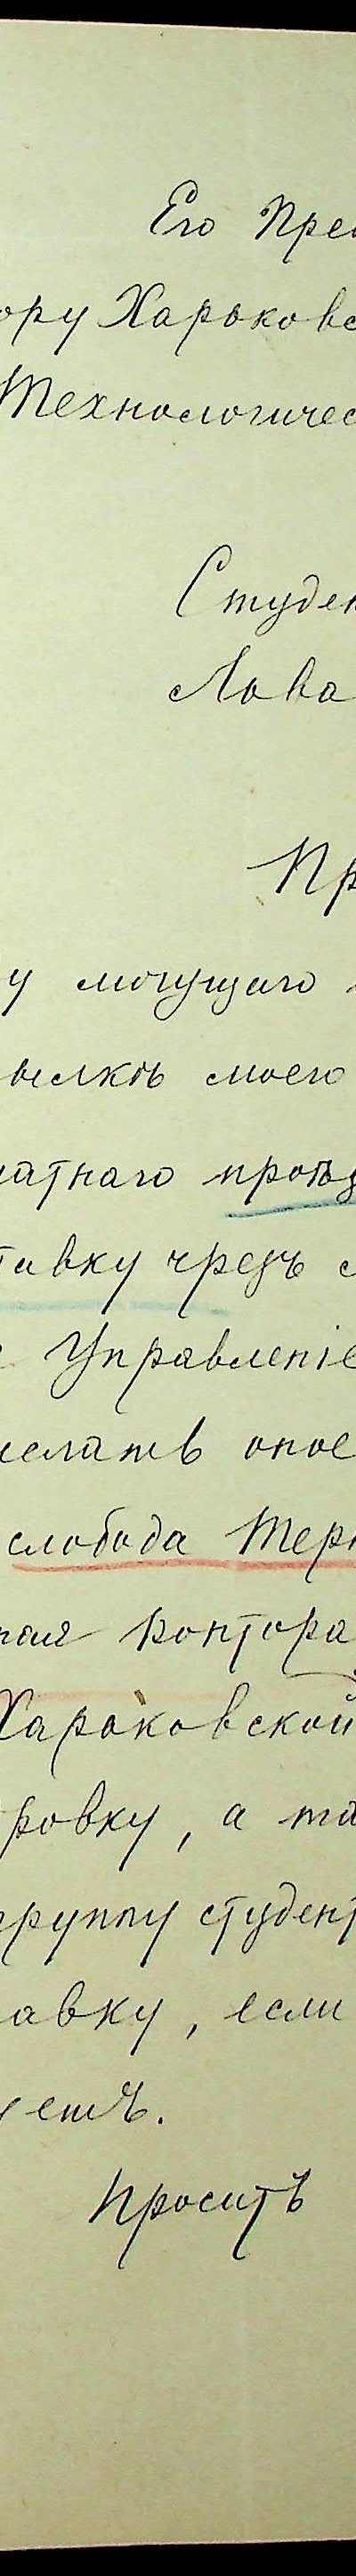 Его Прев
ору Харьковс
Технологичес
Студен
Лова
Пр
у могущаго
вылкѣ моего
латнаго проѣз
тавку чрезъ с
Управленіе
слать оное
слобода Терн
ная Контора
Харьковской
ровку, а та
группу студент
авку, если
уетъ.
Проситъ